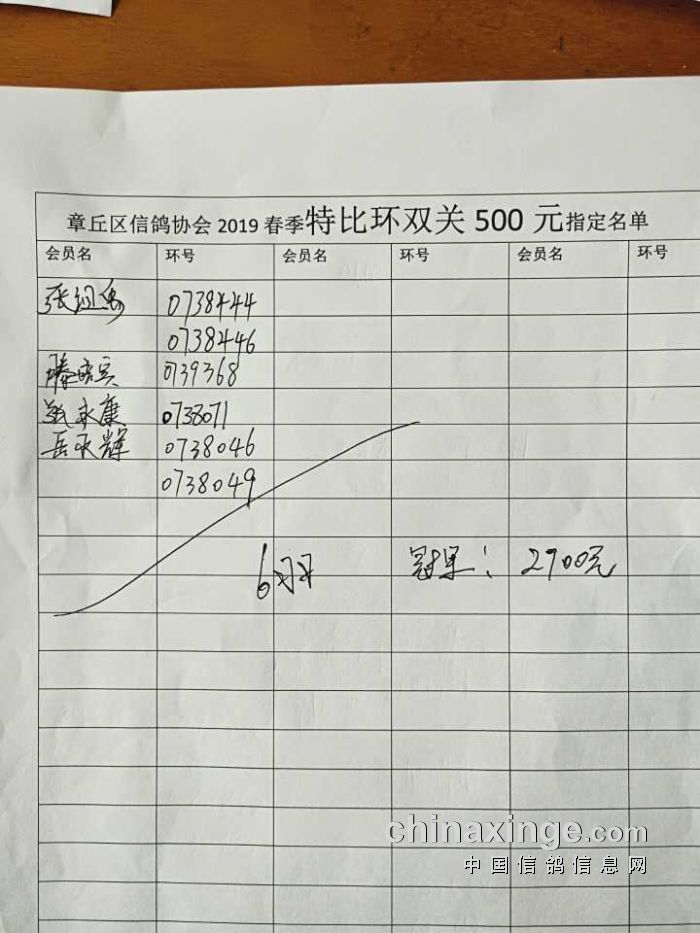 章丘区信鸽协会2019春季特比环双关500元指定名单
会员名 环号 会员名 环号 会员名 环号
0738444
0738446
0739368
0738071
岳永辉 0738046
0738049
6羽 冠军: 2900元
chinaxinge.com
中国信鸽信息网